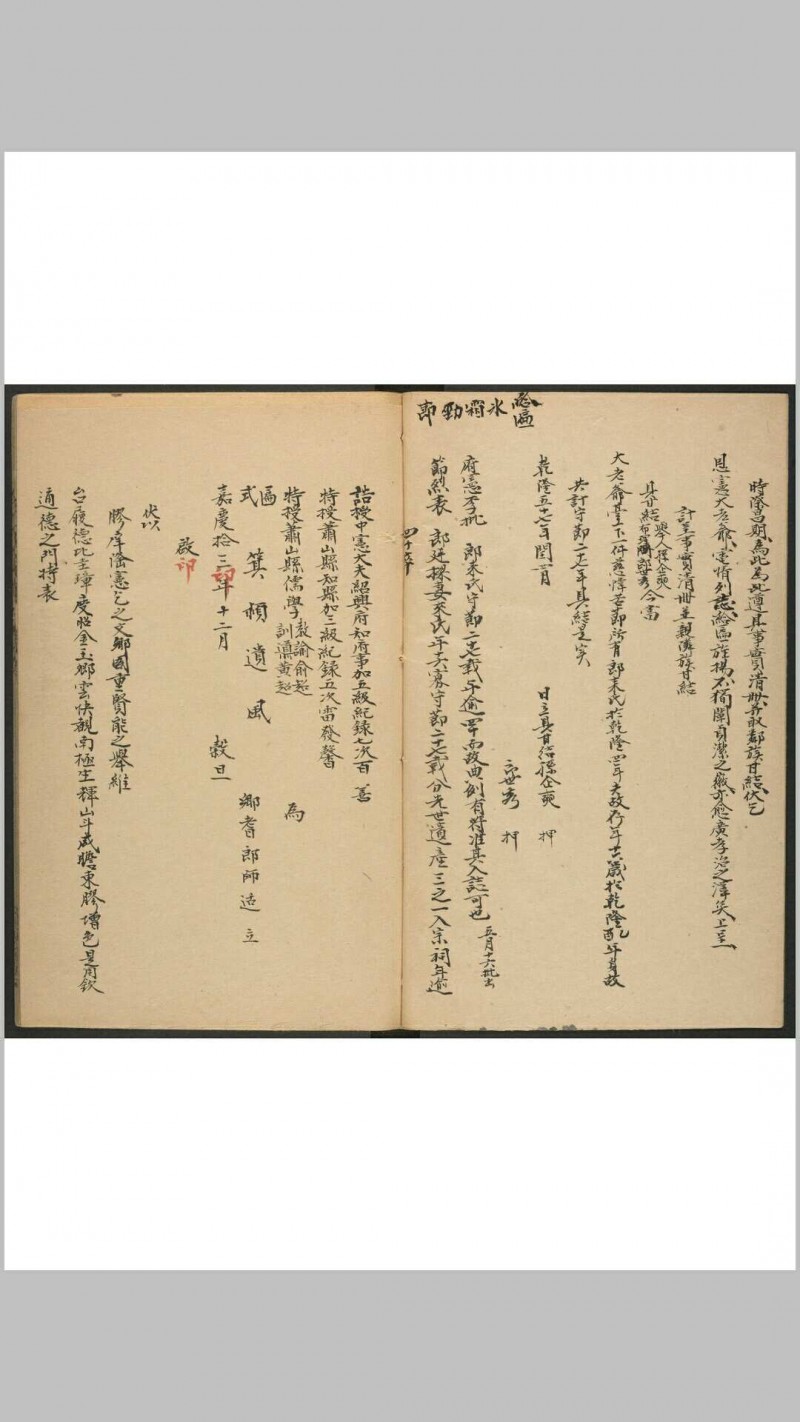 時際昌期為此為此遵具事實清冊並取鄰族甘結伏乞
恩憲大老爺電情列誌給匾旌揚不獨闡貞潔之幽亦愈廣孝治之澤矣上呈
計呈事實清冊並親鄰族甘結
具甘結 舉人孫企奭 今當
大老爺臺下一件慈惇所有郎來氏於乾隆四年夫故存年廿六歲於乾隆年身故
共計守節二十七年具結是實
乾隆五十七年閏四月 日立具甘結孫企奭 押
世秀 押
給匾 冰霜勁節
府憲李批 郎來氏守節二十七載年逾四十而故典例有符准其入誌可也 五月十六批出
節烈表 郎廷探妻來氏年廿六寡守節二十七載分先世遺產三之一入宗祠年逾
四十卒
誥授中憲大夫紹興府知府事加五級紀錄七次百 善
特授蕭山縣知縣加三級紀錄五次雷發聲
特授蕭山縣儒學 教諭俞超 訓導黃超 為
匾式 箕頫遺風 鄉耆郎師适立
嘉慶拾三年十二月 穀旦
啟
伏以
膠庠蔭憲乞之文鄉國重賢能之舉維
台履德比圭璋度昭金玉鄉雲快覩南極生輝山斗咸瞻東膠增色是用欽
通德之門持表